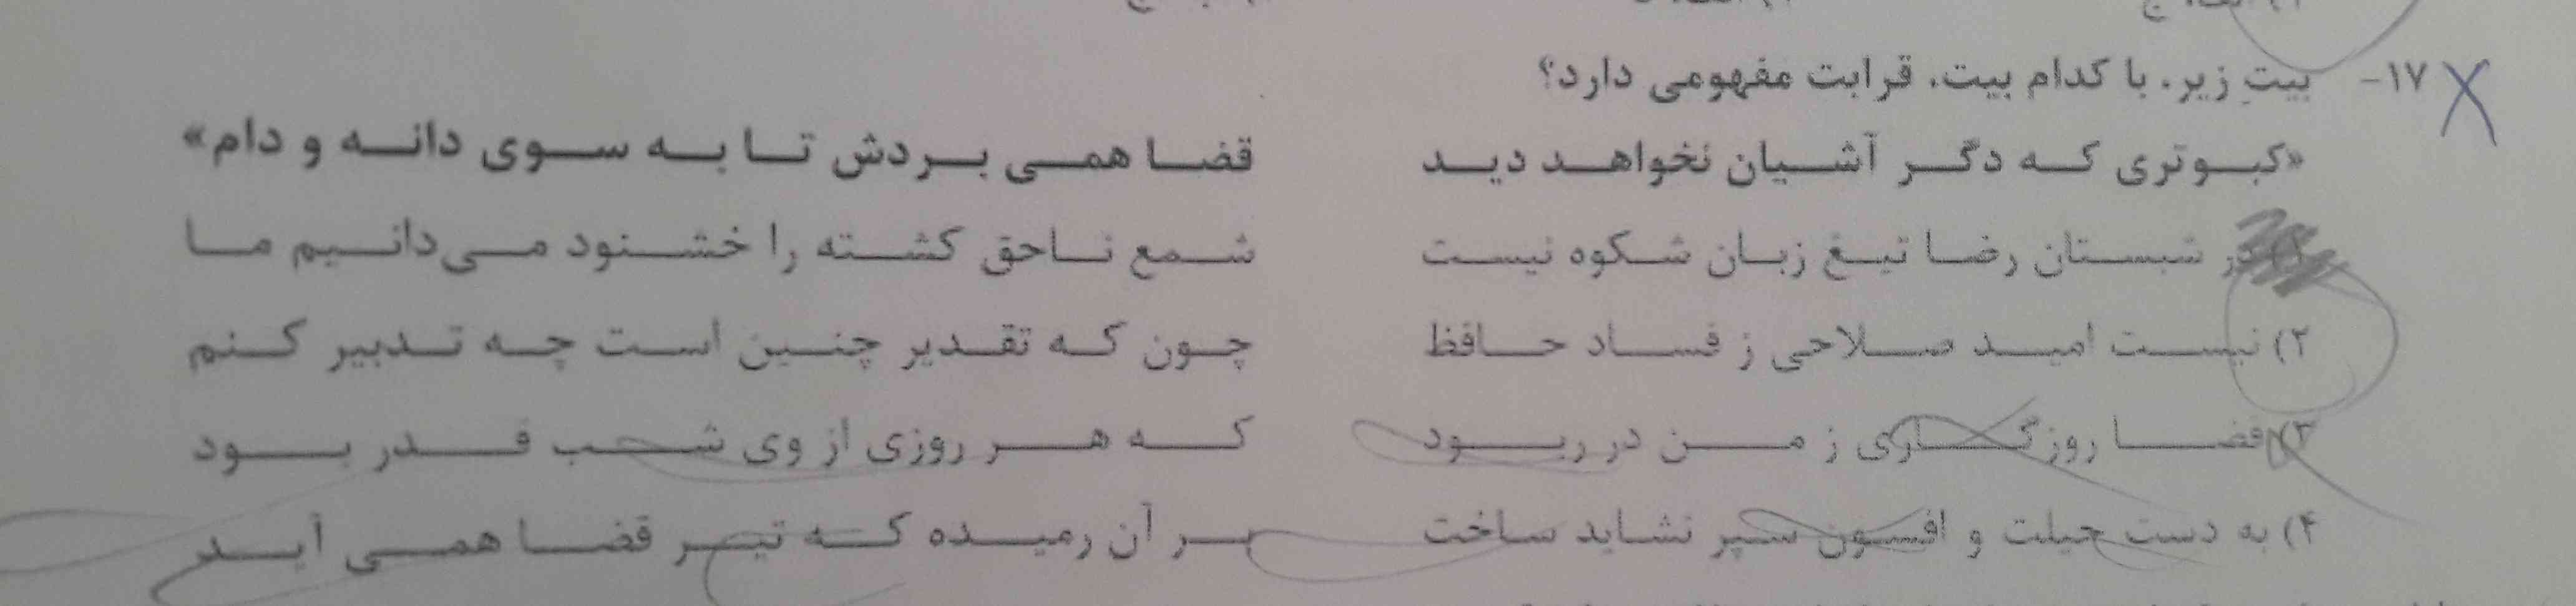 ۱۷- بیتِ زیر، با کدام بیت، قرابت مفهومی دارد؟
«کبوتری که دگر آشیان نخواهد دید قضا همی بردش تا به سوی دانه و دام»
۱) در شبستان رضا تیغ زبان شکوه نیست شمع ناحق کشته را خشنود می‌دانیم ما
۲) نیست امید صلاحی ز فساد حافظ چون که تقدیر چنین است چه تدبیر کنم
۳) قضا روزگاری ز من در ربود که هر روزی از وی شب قدر بود
۴) به دست حیلت و افسون سپر نشاید ساخت بر آن رمیده که تیر قضا همی آید